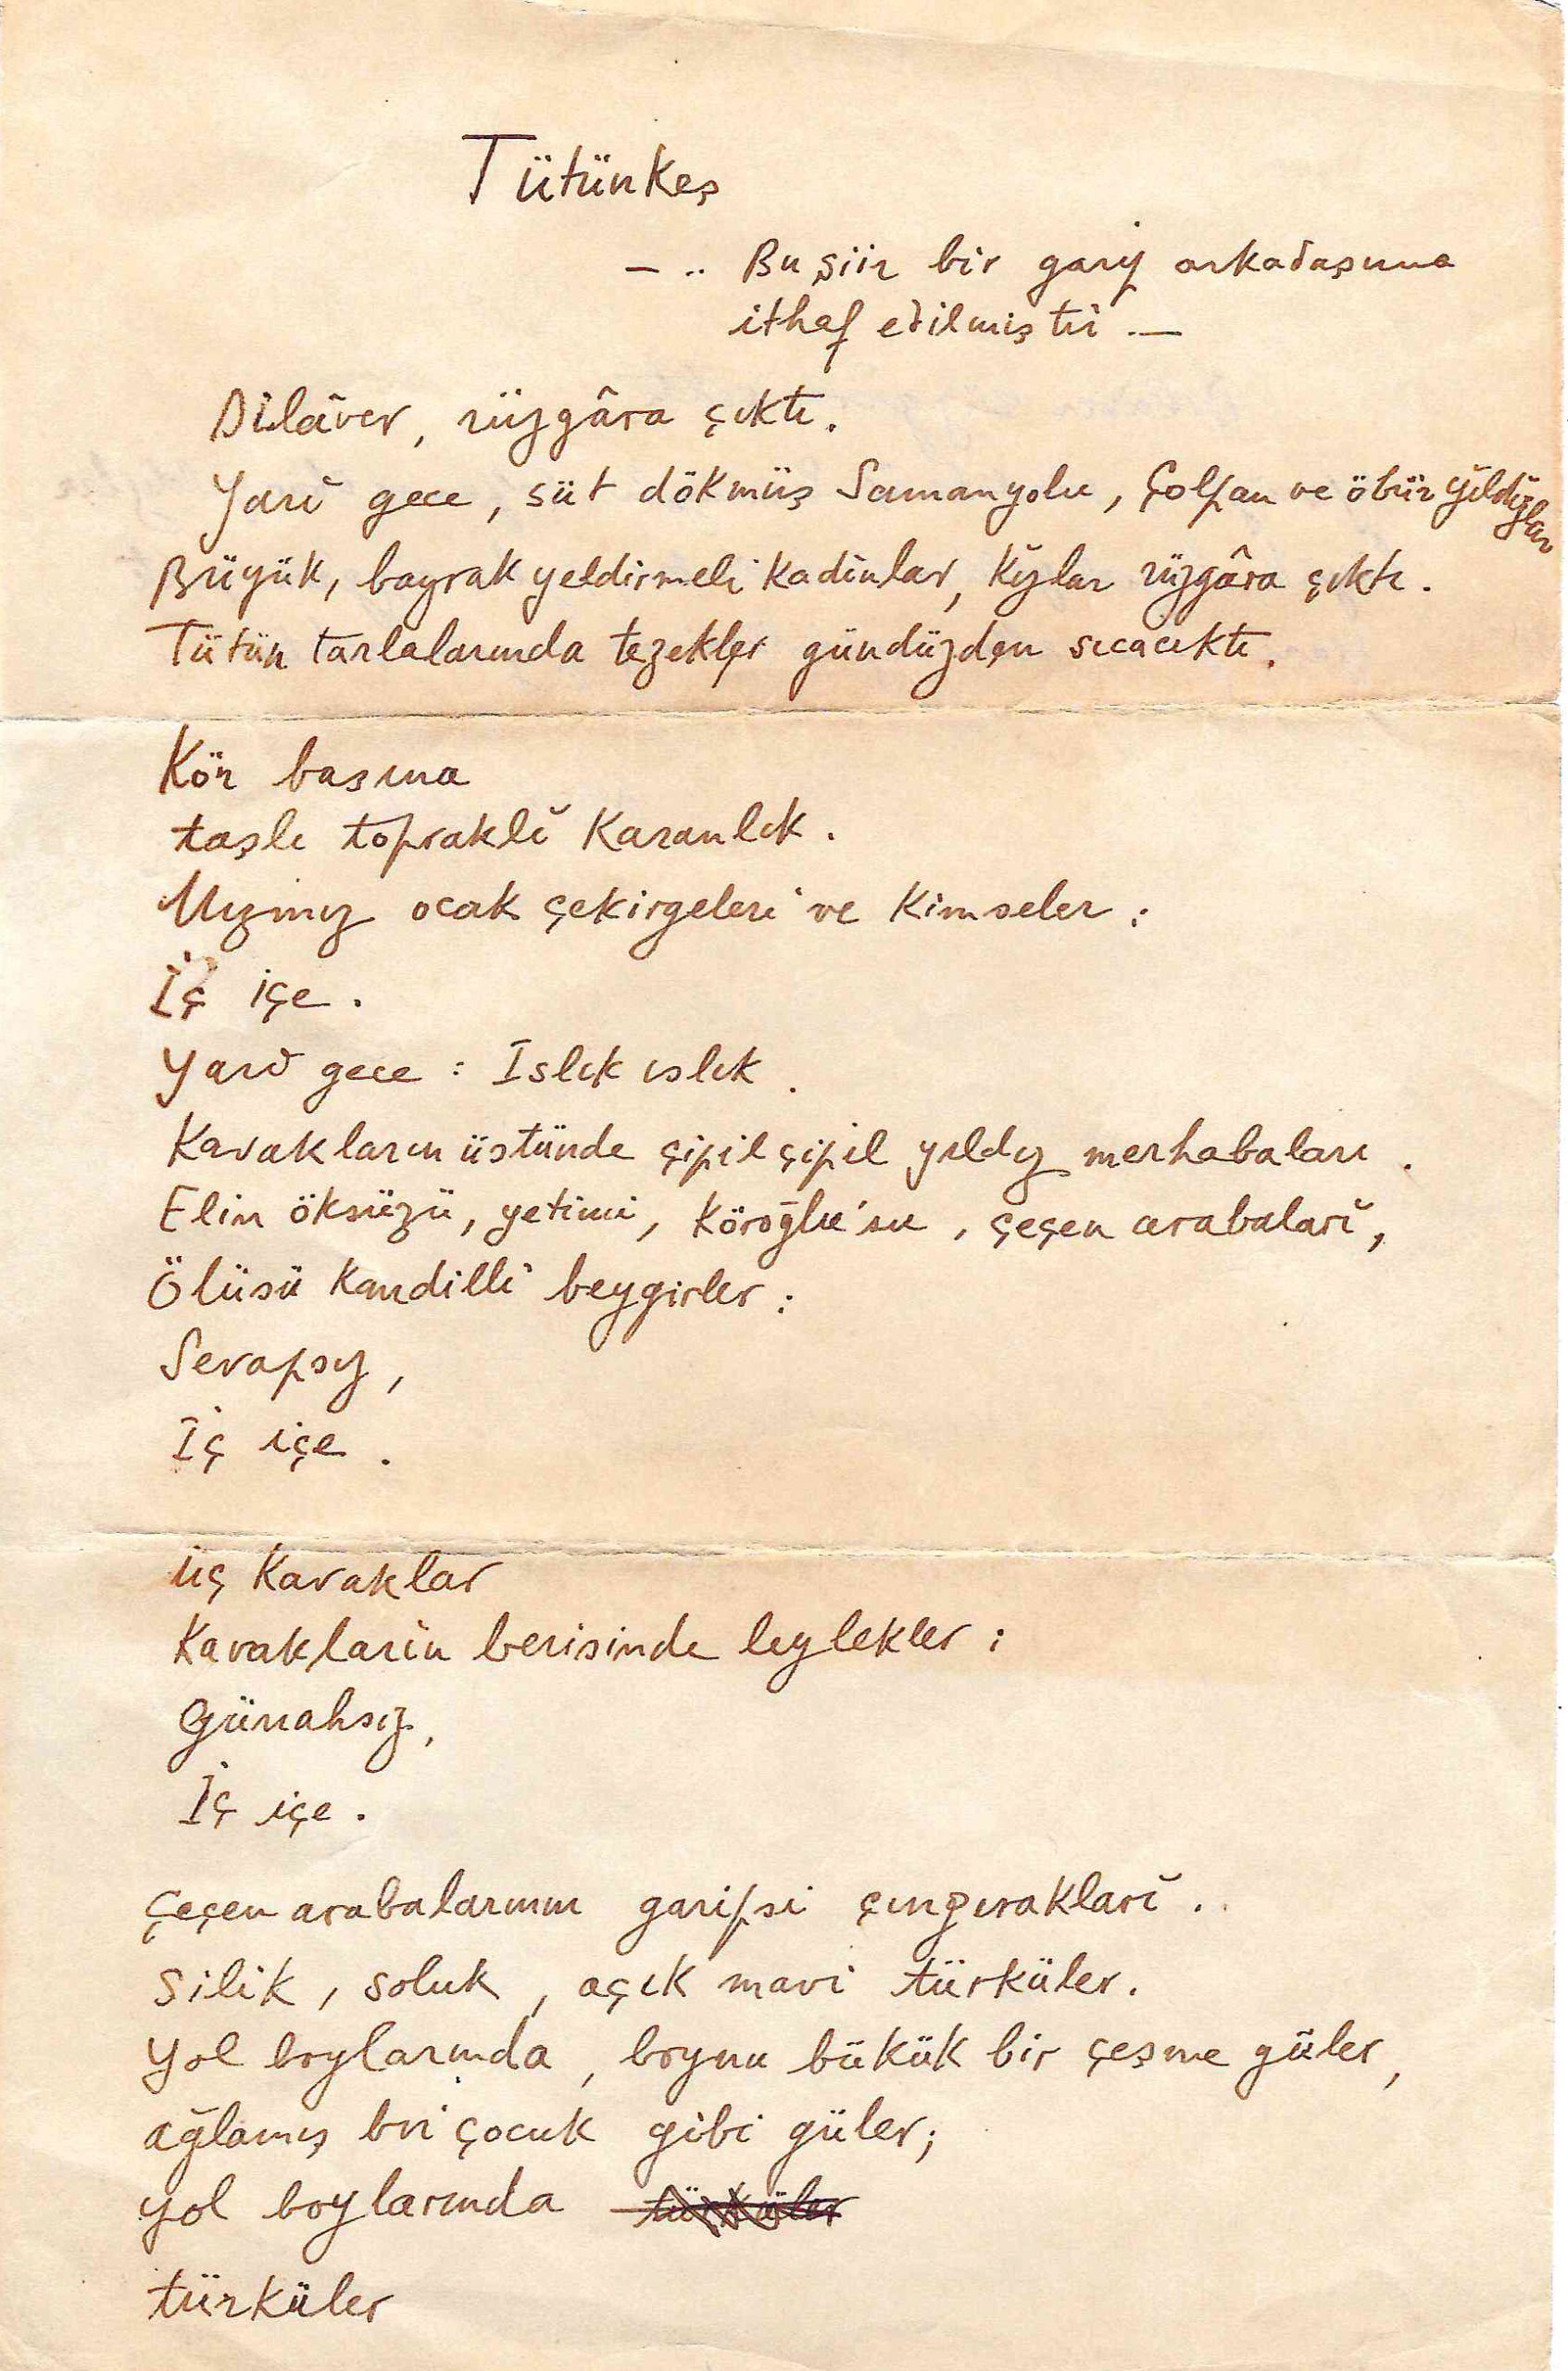 Tütünkeş
— .. Bu şiir bir garip arkadaşıma
ithaf edilmiştir .—
Dilâver, rüzgâra çıktı.
Yarı gece, süt dökmüş Samanyolu, Çolpan ve öbür yıldızlar
Büyük, bayrak yeldirmeli kadınlar, kızlar rüzgâra çıktı.
Tütün tarlalarında tezekler gündüzden sıcacıktı.
Kör başına
taşlı topraklı Karanlık.
Mızmız ocak çekirgeleri ve Kimseler :
İç içe.
Yarı gece : Islık ıslık.
Kavakların üstünde çipil çipil yıldız merhabaları.
Elin öksüzü, yetimi, Köroğlu'su, çeçen arabaları,
Ölüsü Kandilli beygirler :
Sevapsız,
İç içe.
üç Kavaklar
Kavakların berisinde leylekler :
Günahsız,
İç içe.
Çeçen arabalarının garipsi çıngırakları..
Silik, soluk, açık mavi türküler.
Yol boylarında, boynu bükük bir çeşme güler,
ağlamış bir çocuk gibi güler;
yol boylarında türküler
türküler